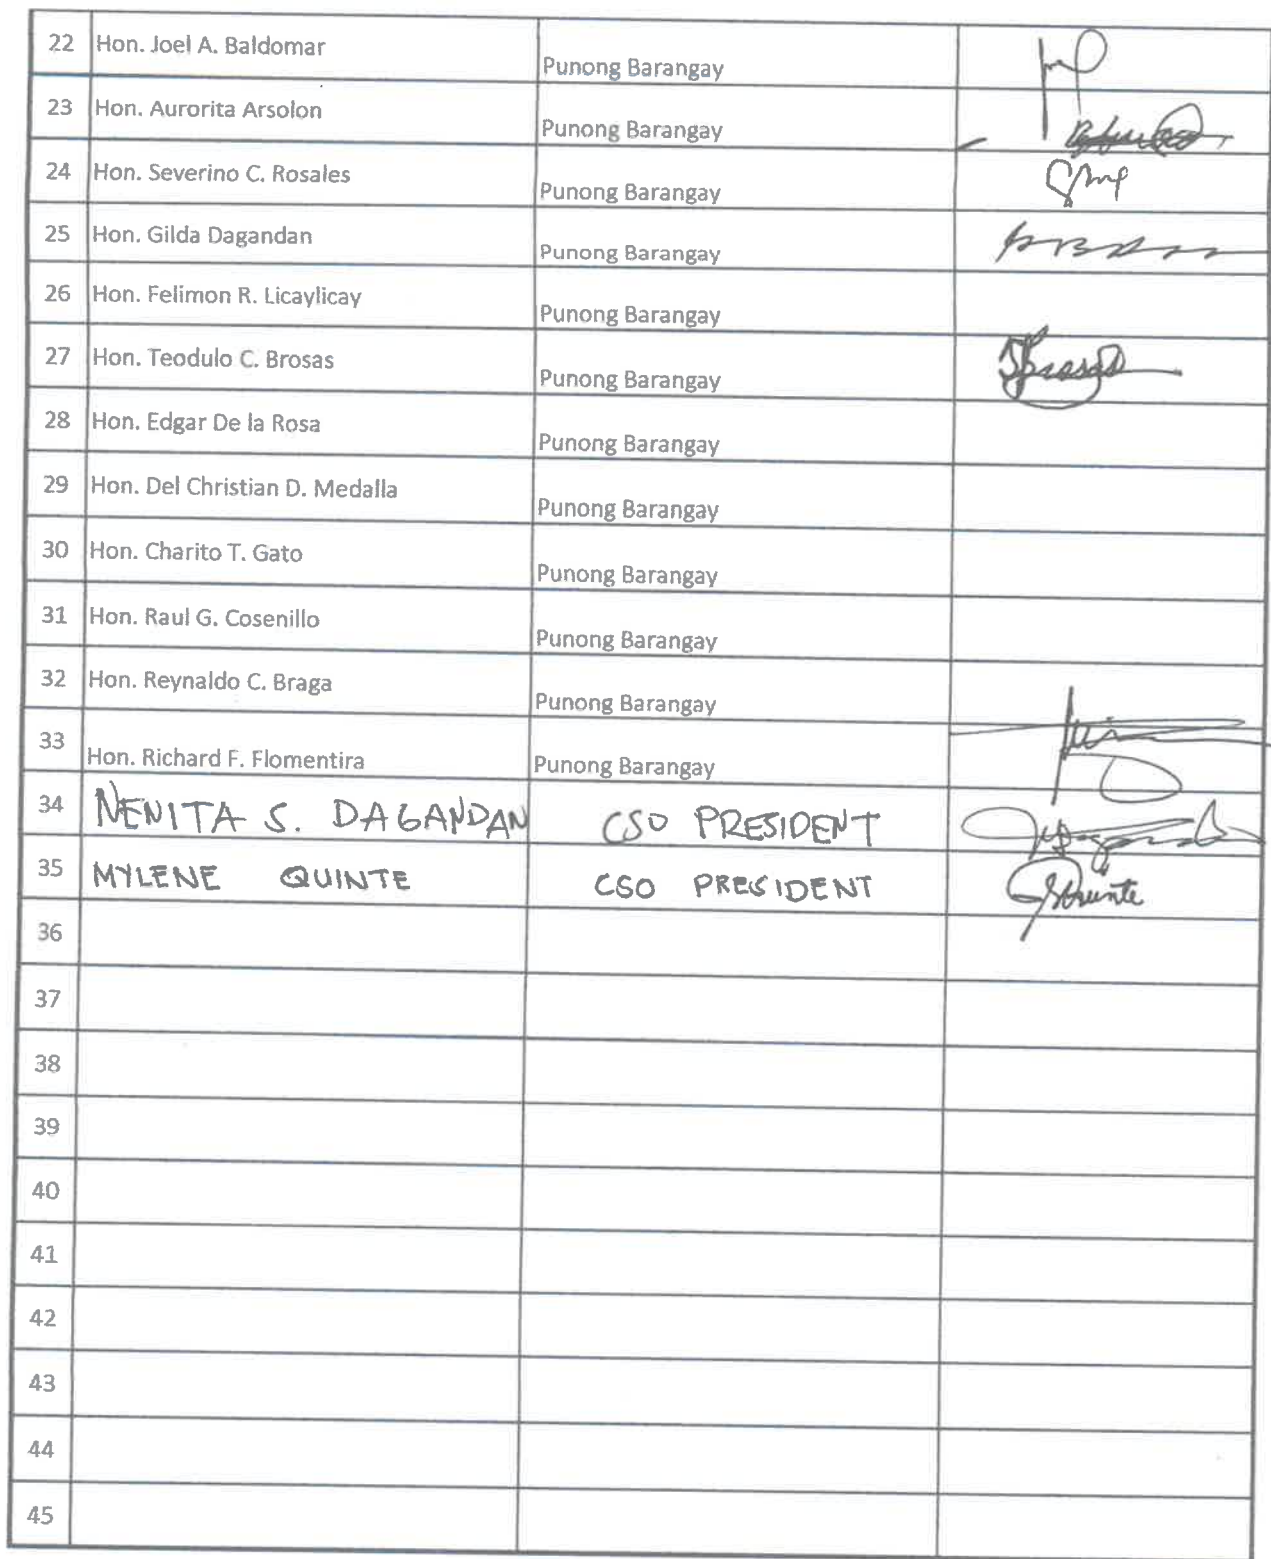 22 Hon. Joel A. Baldomar Punong Barangay
23 Hon. Aurorita Arsolon Punong Barangay
24 Hon. Severino C. Rosales Punong Barangay
25 Hon. Gilda Dagandan Punong Barangay
26 Hon. Felimon R. Licaylicay Punong Barangay
27 Hon. Teodulo C. Brosas Punong Barangay
28 Hon. Edgar De la Rosa Punong Barangay
29 Hon. Del Christian D. Medalla Punong Barangay
30 Hon. Charito T. Gato Punong Barangay
31 Hon. Raul G. Cosenillo Punong Barangay
32 Hon. Reynaldo C. Braga Punong Barangay
33 Hon. Richard F. Flomentira Punong Barangay
34 NENITA S. DAGANDAN CSO PRESIDENT
35 MYLENE QUINTE CSO PRESIDENT
36
37
38
39
40
41
42
43
44
45